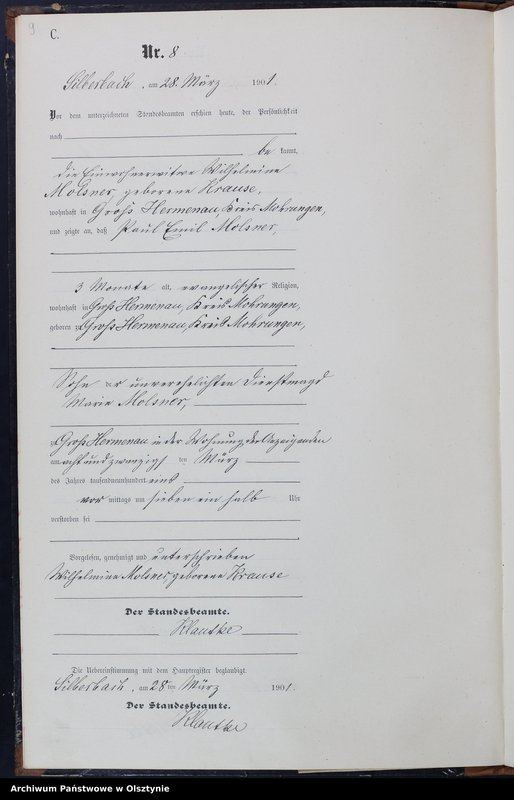 9
C.
Nr. 8
Silberbach, am 28. März 1901.
Vor dem unterzeichneten Standesbeamten erschien heute, der Persönlichkeit
nach
be kannt,
die Einwohnerwitwe Wilhelmine
Molsner geborene Krause,
wohnhaft in Groß Hermenau, Kreis Mohrungen,
und zeigte an, daß Paul Emil Molsner,
3 Monate alt, evangelischer Religion,
wohnhaft in Groß Hermenau, Kreis Mohrungen,
geboren zu Groß Hermenau, Kreis Mohrungen,
Sohn der unverehelichten Dienstmagd
Marie Molsner,
zu Groß Hermenau in der Wohnung der Anzeigenden
am acht und zwanzigsten März
des Jahres tausendneunhundert eins
vor mittags um sieben ein halb Uhr
verstorben sei
Vorgelesen, genehmigt und unterschrieben
Wilhelmine Molsner, geborene Krause
Der Standesbeamte.
Klautke
Die Uebereinstimmung mit dem Hauptregister beglaubigt.
Silberbach, am 28ten März 1901.
Der Standesbeamte.
Klautke
Archiwum Państwowe w Olsztynie